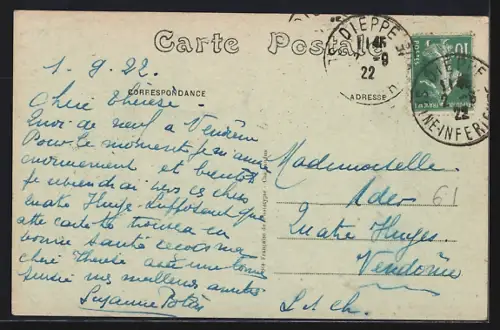 Carte Postale
CORRESPONDANCE
ADRESSE
DIEPPE
22
DIEPPE
22
INFERIE
1.9.22
Chère Thérèse.
Quoi de neuf a Vendôme
Pour le moment
mouvement et bientôt
je reviendrai vers ce cher
Quatre Huyes. Supposant que
cette carte te trouvera en
bonne santé
chère Thérèse avec une bonne
mes meilleures amitiés
Suzanne
Mademoiselle
Ader
61
Quatre Huyes.
Vendôme
L et Ch.